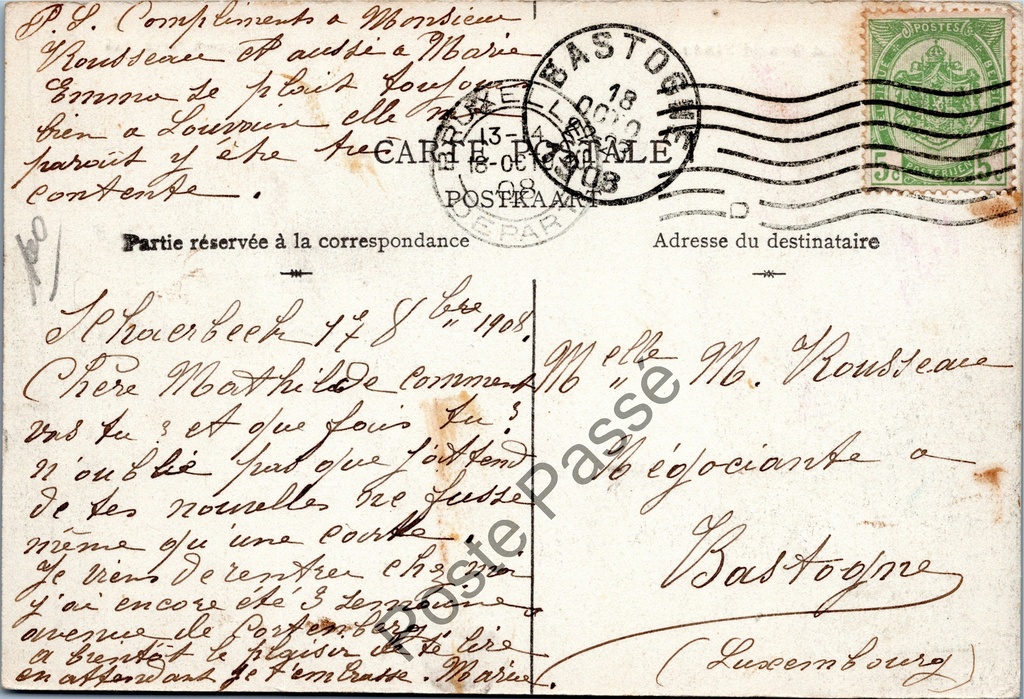 P.S. Compliments a Monsieur
Rousseau et ausse a Marie
Emma se plait toujours
bien a Louvain elle m
parait y être tre
contente.
BASTOGNE
18
OCTO
1908
BRUXELLES
13-
18-OCTO
08
DEPART
POSTES
5c 5c
D
CARTE POSTALE
POSTKAART
Partie réservée à la correspondance
Adresse du destinataire
Schaerbeek 17 8bre 1908.
Chère Mathilde comment
vas tu ? et que fais tu ?
n'oublie pas que j'attend
de tes nouvelles ne fusse
même qu'une carte.
Je viens de rentrer chez moi
j'ai encore été 3 semaine a
avenue de Cortenberg
a bientôt le plaisir de te lire
en attendant je t'embrasse. Marie.
Melle M. Rousseau
Négociante a
Bastogne
(Luxembourg)
Poste Passé